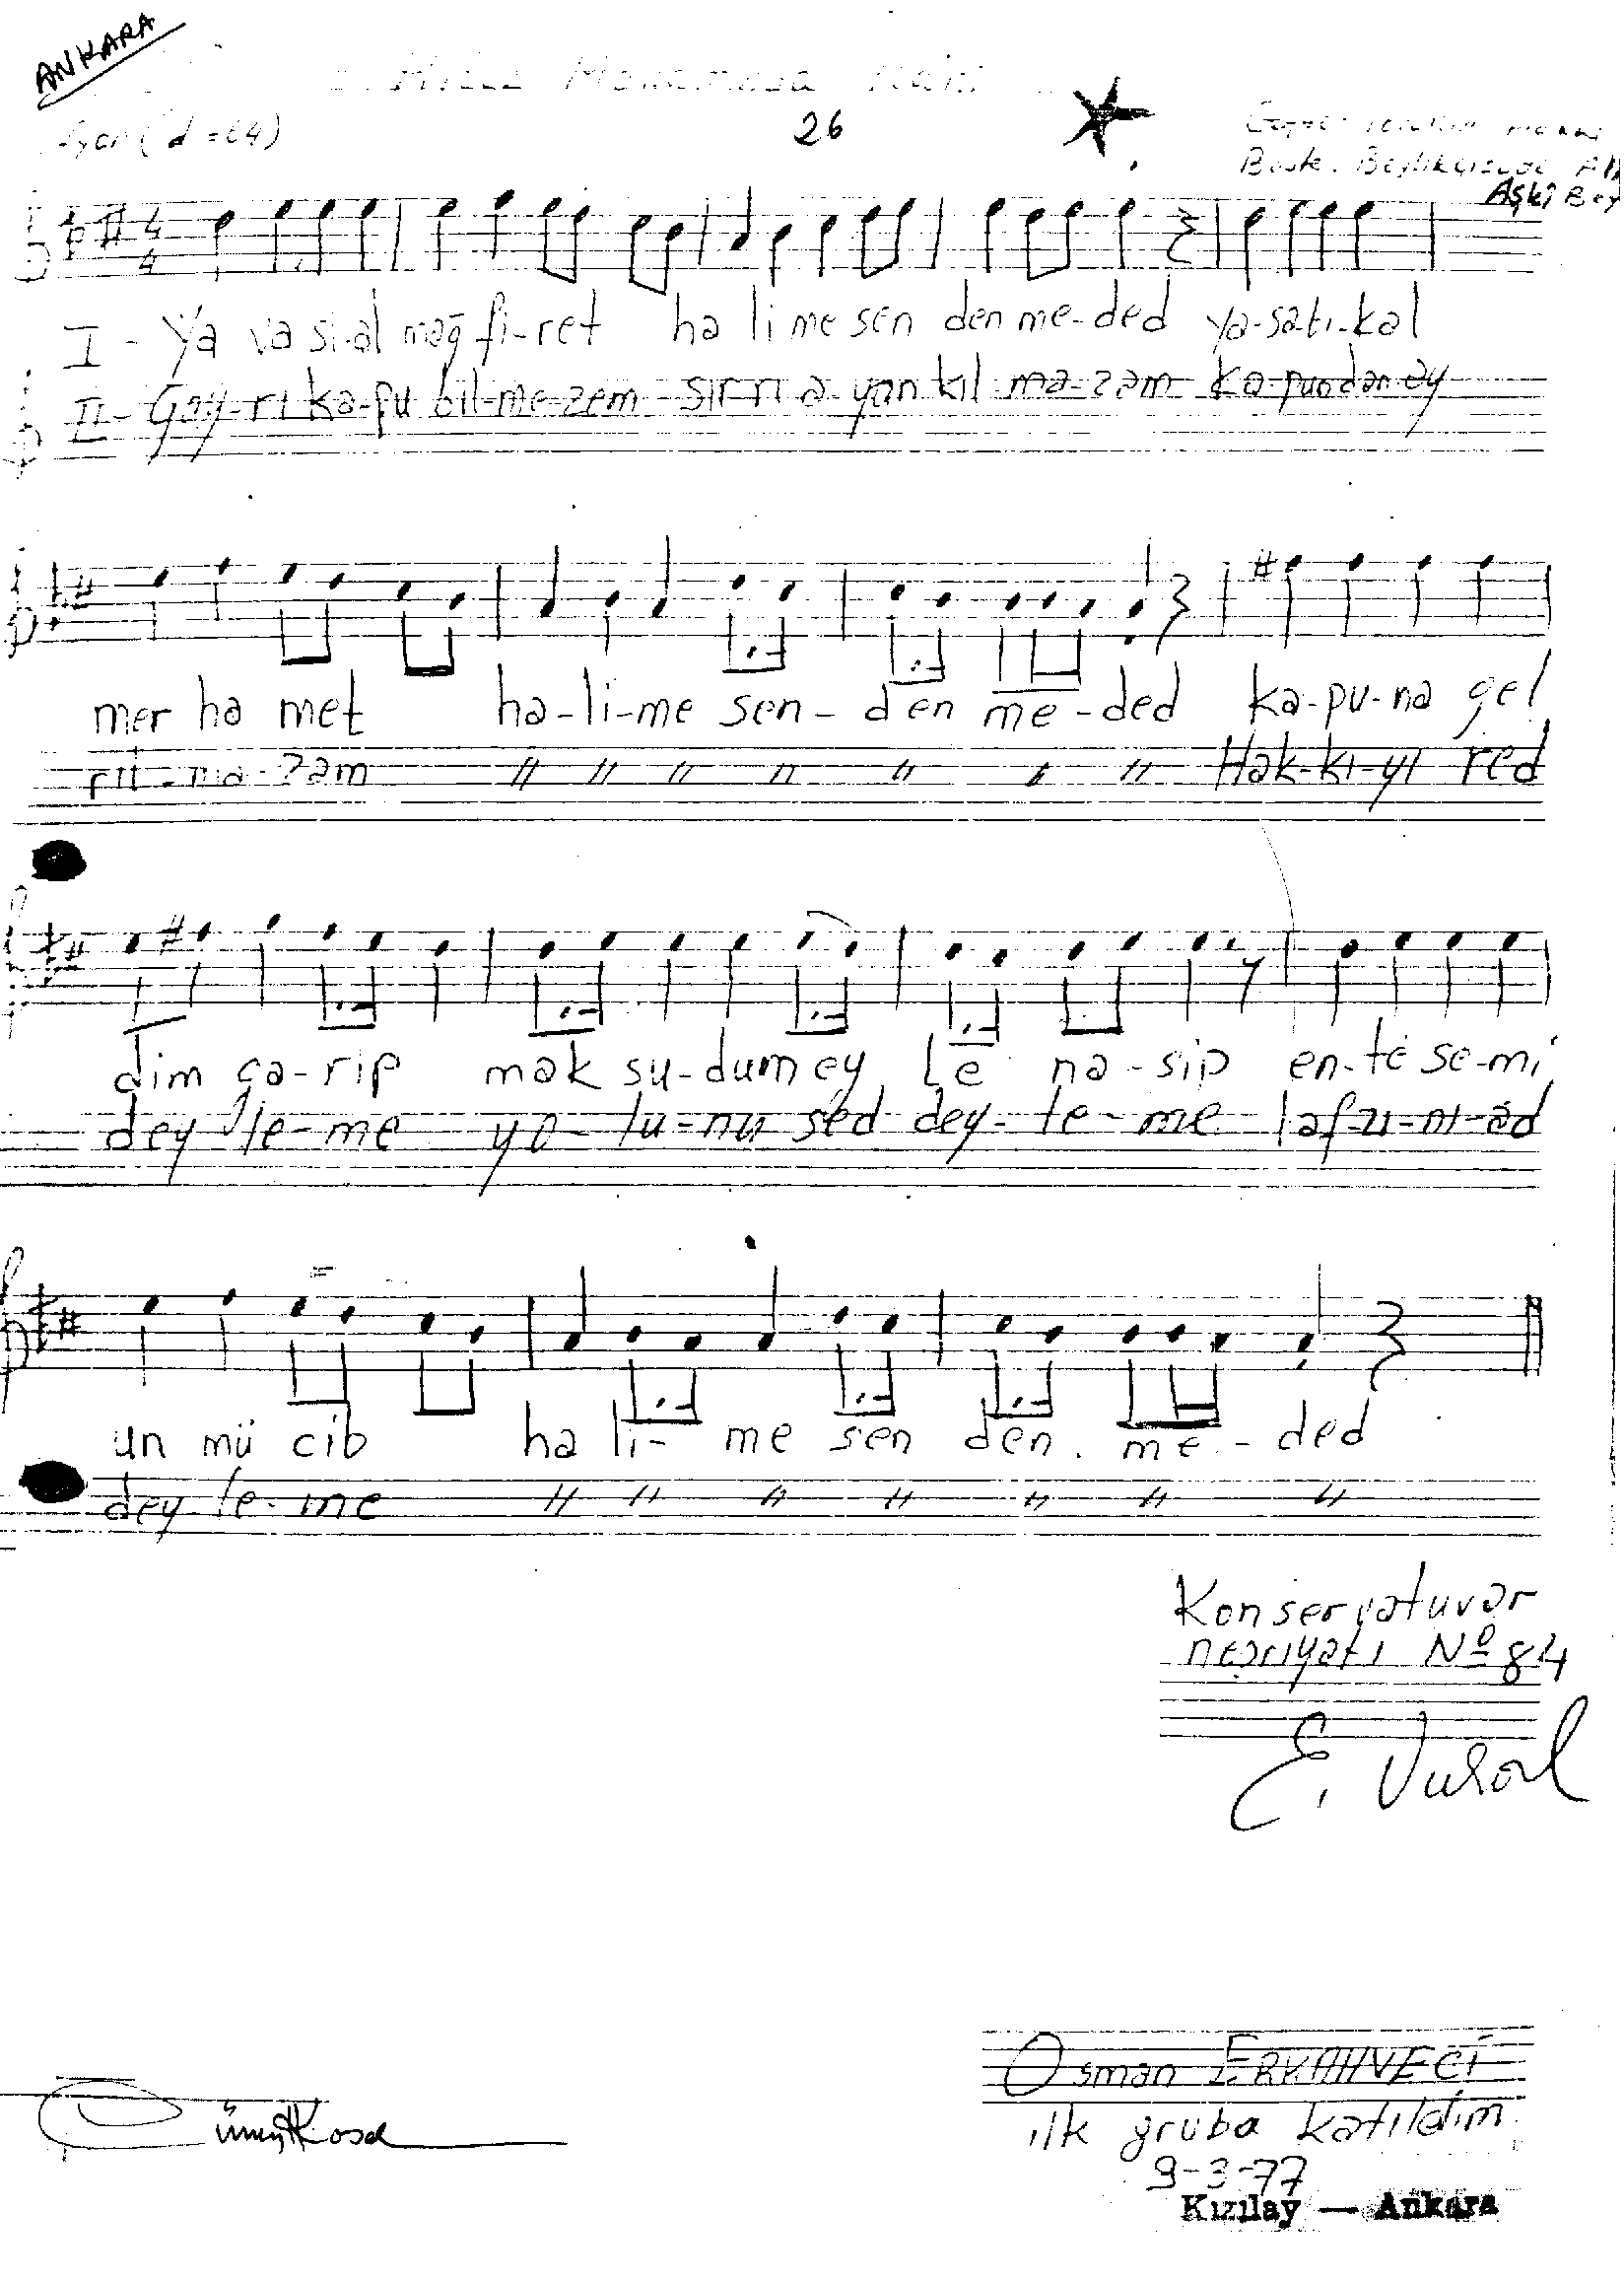 ANKARA
26
Aşkî Bey
4
4
I - Ya va si-al mağ fi-ret ha li me sen den me-ded ya-sa-tı-kal
II - Gay-rı ka-pu bil-me-zem sır rı a-yan kıl ma-zam ka-pundan ay
mer ha met ha-li-me sen-den me-ded ka-pu-na gel
rıl-ma-zam " " " " " " " Hak-kı-yı red
dim ga-rip mak su-dum ey le na-sip en-te se-mi
dey le-me yo-lu-nu sed dey-le-me laf-zı-nı-ad
un mü cib ha li-me sen den me-ded
dey-le-me " " " " " " "
Konservatuvar
neşriyatı Nº 84
E. Vural
Osman ERKAHVECİ
ilk gruba katıldım.
9-3-77
Kızılay — Ankara